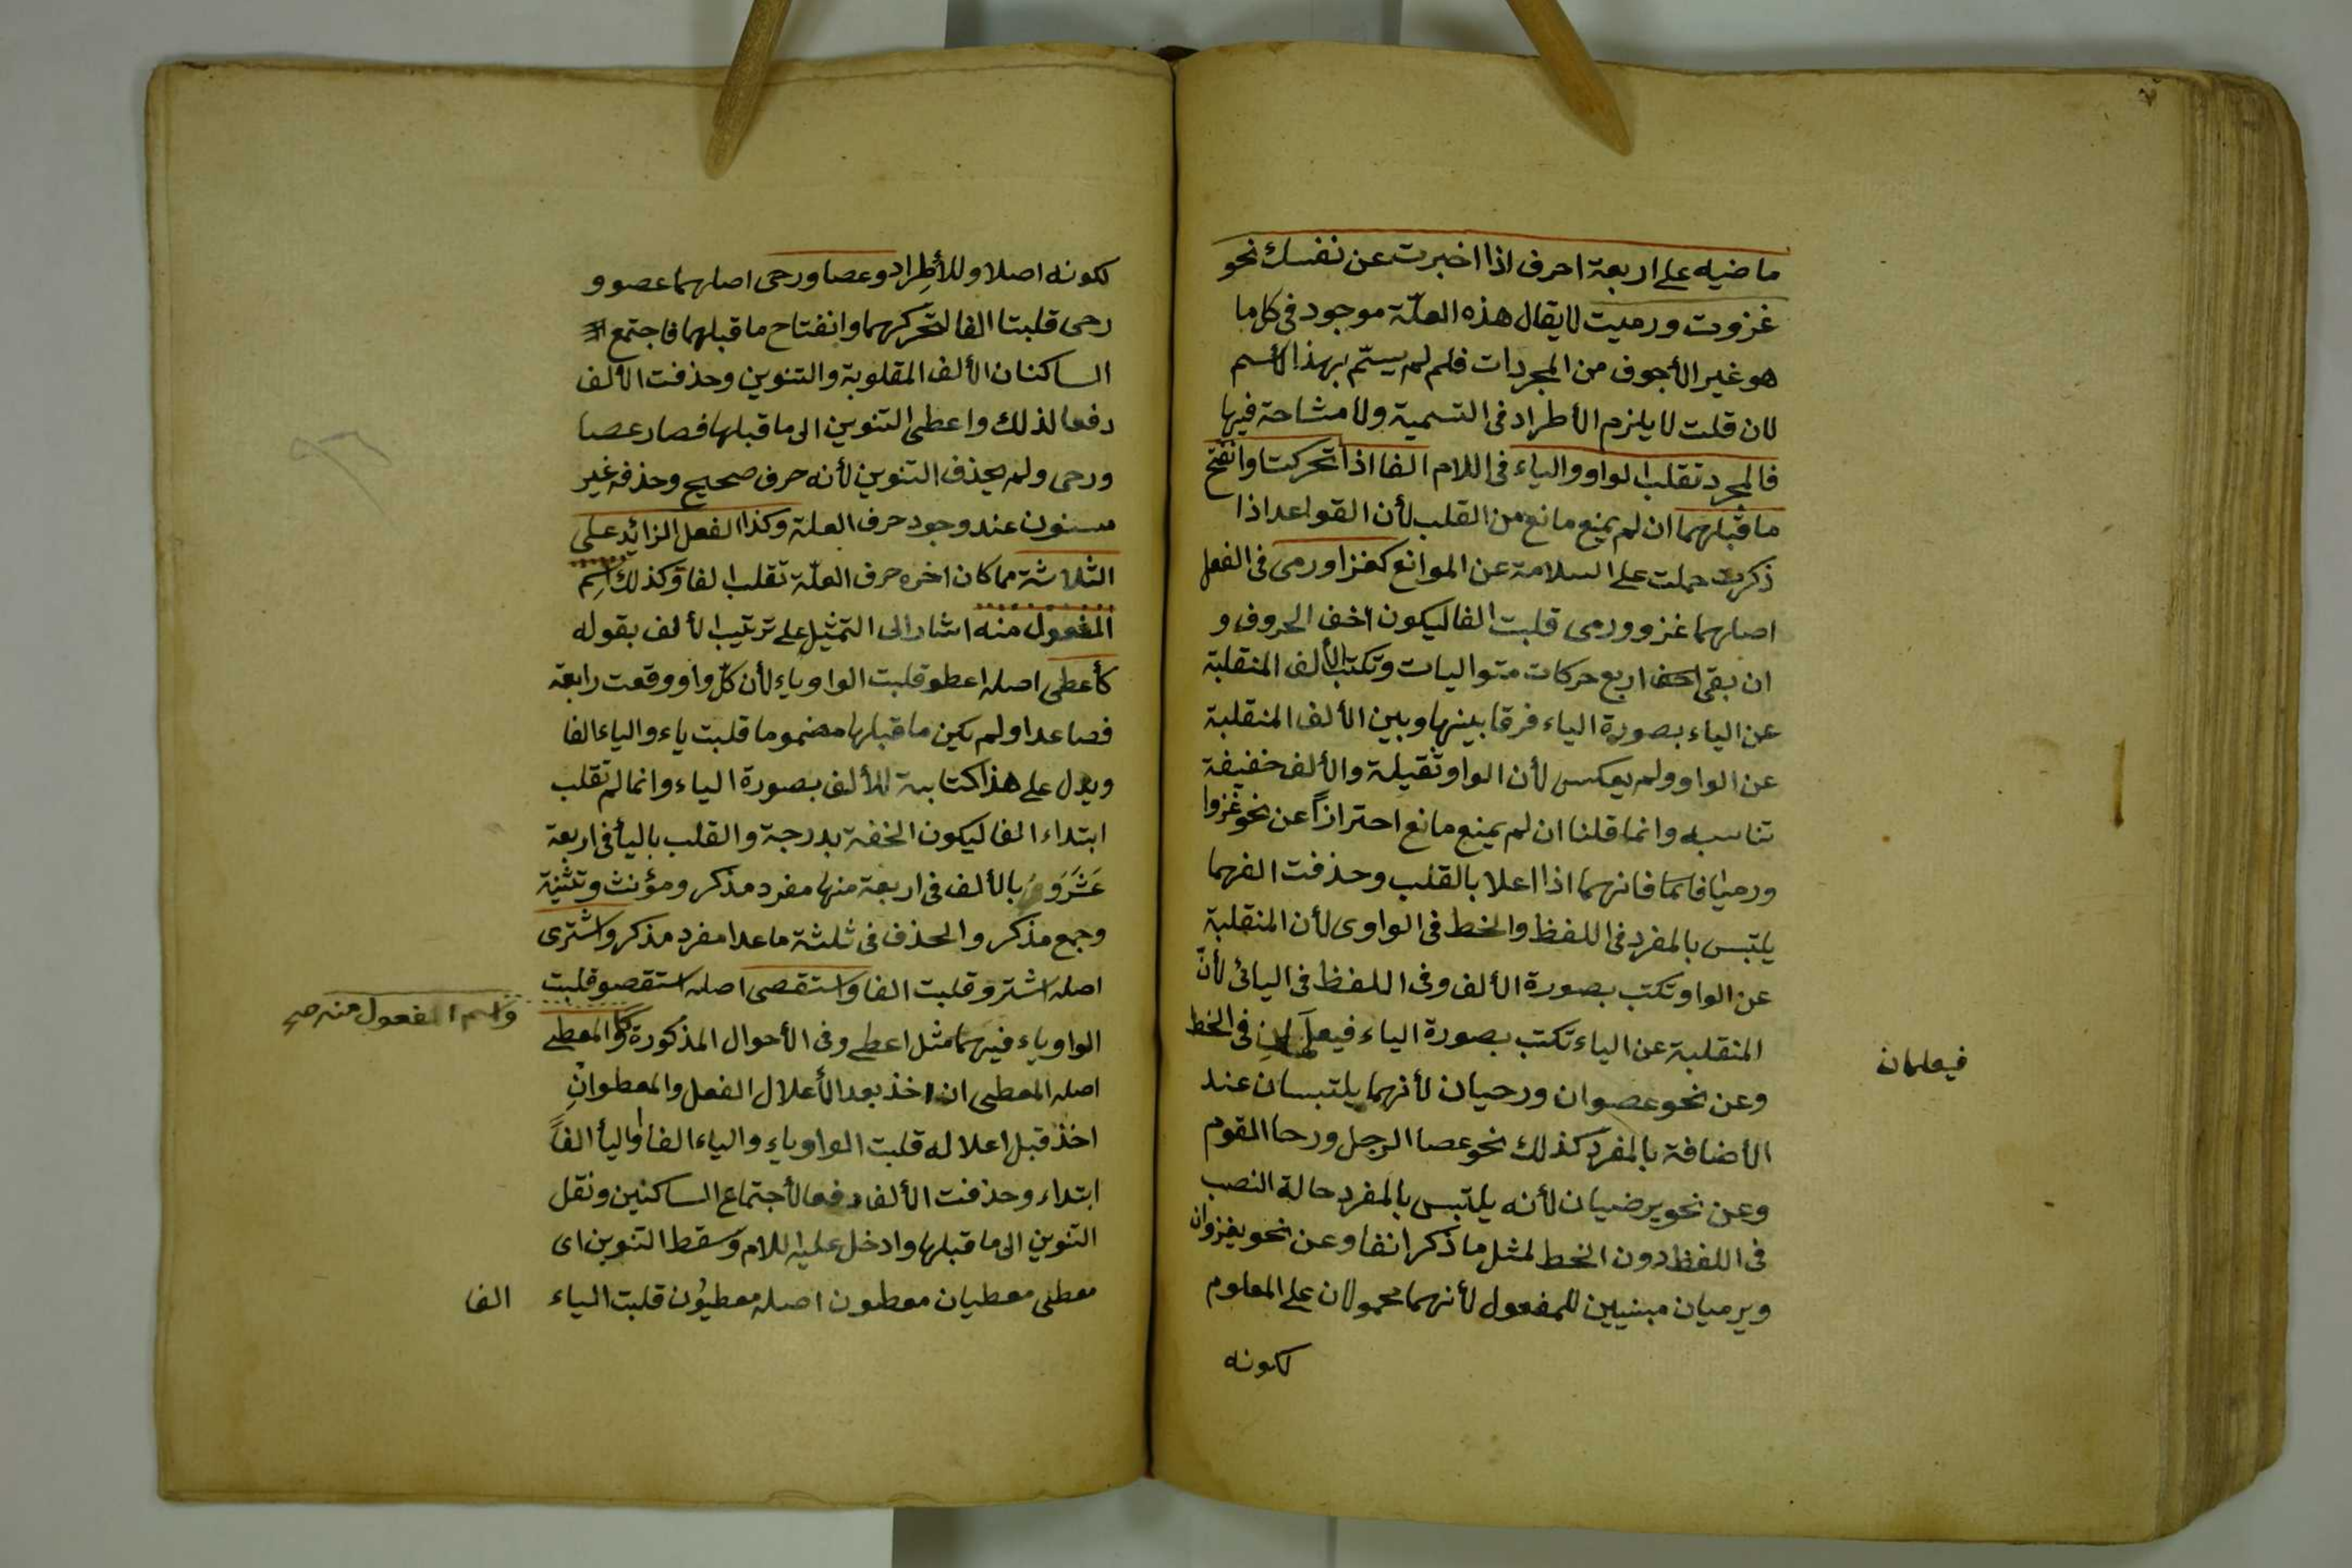 ماضيه على اربعة احرف اذا اخبرت عن نفسك نحو
غزوت ورميت لا يقال هذه العلّة موجود فى كل ما
هو غير الأجوف من المجردات فلم لم يسمّ بهذا الأسم
لان قلت لا يلزم الأطراد فى التسمية ولا مشاحة فيها
فالمجرد تقلب الواو والياء فى اللام الفا اذا تحركتا وانفتح
ما قبلهما ان لم يمنع مانع من القلب لأن القواعد اذا
ذكرت حملت على السلامة عن الموانع كغزا ورمى فى الفعل
اصلهما غزو ورمى قلبت الفا ليكون اخف الحروف و
ان بقى اربع حركات متواليات وتكتب الألف المنقلبة
عن الياء بصورة الياء فرقا بينها وبين الألف المنقلبة
عن الواو ولم يعكس لأن الواو ثقيلة والألف خفيفة
تناسبه وانما قلنا ان لم يمنع مانع احترازاً عن نحو غزوا
ورميا فانهما اذا اعلا بالقلب وحذفت الفهما
يلتبس بالمفرد فى اللفظ والخط فى الواوى لأن المنقلبة
عن الواو تكتب بصورة الألف وفى اللفظ فى اليائى لأنّ
المنقلبة عن الياء تكتب بصورة الياء فى الخط
فيعلمان
وعن نحو عصوان ورحيان لأنهما يلتبسان عند
الأضافة بالمفرد كذلك نحو عصا الرجل ورحا القوم
وعن نحو يرضيان لأنه يلتبس بالمفرد حالة النصب
فى اللفظ دون الخط لمثل ما ذكر انفا وعن نحو يغزوان
ويرميان مبنيين للمفعول لأنهما محمولان على المعلوم
لكونه
لكونه اصلا وللأطراد وعصا ورحى اصلهما عصو و
رحى قلبتا الفا لتحركهما وانفتاح ما قبلهما فاجتمع
الساكنان الألف المقلوبة والتنوين وحذفت الألف
دفعا لذلك واعطى التنوين الى ما قبلها فصار عصا
ورحى ولم يحذف التنوين لأنه حرف صحيح وحذفه غير
مسنون عند وجود حرف العلة وكذا الفعل الزائد على
الثلاثة مما كان اخره حرف العلّة تقلب الفا وكذلك اسم
المفعول منه اشار الى التمثيل على ترتيب الألف بقوله
كأعطى اصله اعطو قلبت الواو ياء لأن كلّ واو وقعت رابعة
فصاعدا ولم يكن ما قبلها مضموما قلبت ياء والياء الفا
ويدل على هذا كتابية الألف بصورة الياء وانما لم تقلب
ابتداء الفا ليكون الخفة بدرجة والقلب باليأ فى اربعة
عشر و بالألف فى اربعة منها مفرد مذكر ومؤنث وتثنية
وجمع مذكر والحذف فى ثلثة ما عدا مفرد مذكر واشترى
اصله اشترو قلبت الفا واستقصى اصله استقصو قلبت
واسم المفعول منه صح
الواو ياء فيهما مثل اعطى وفى الأحوال المذكورة كالمعطى
اصله المعطى ان اخذ بعد الأعلال الفعل والمعطو ان
اخذ قبل اعلاله قلبت الواو ياء والياء الفا واليأ الفاً
ابتداء وحذفت الألف دفعا لأجتماع الساكنين ونقل
التنوين الى ما قبلها وادخل عليه اللام وسقط التنوين اى
معطى معطيان معطون اصله معطيون قلبت الياء
الفا